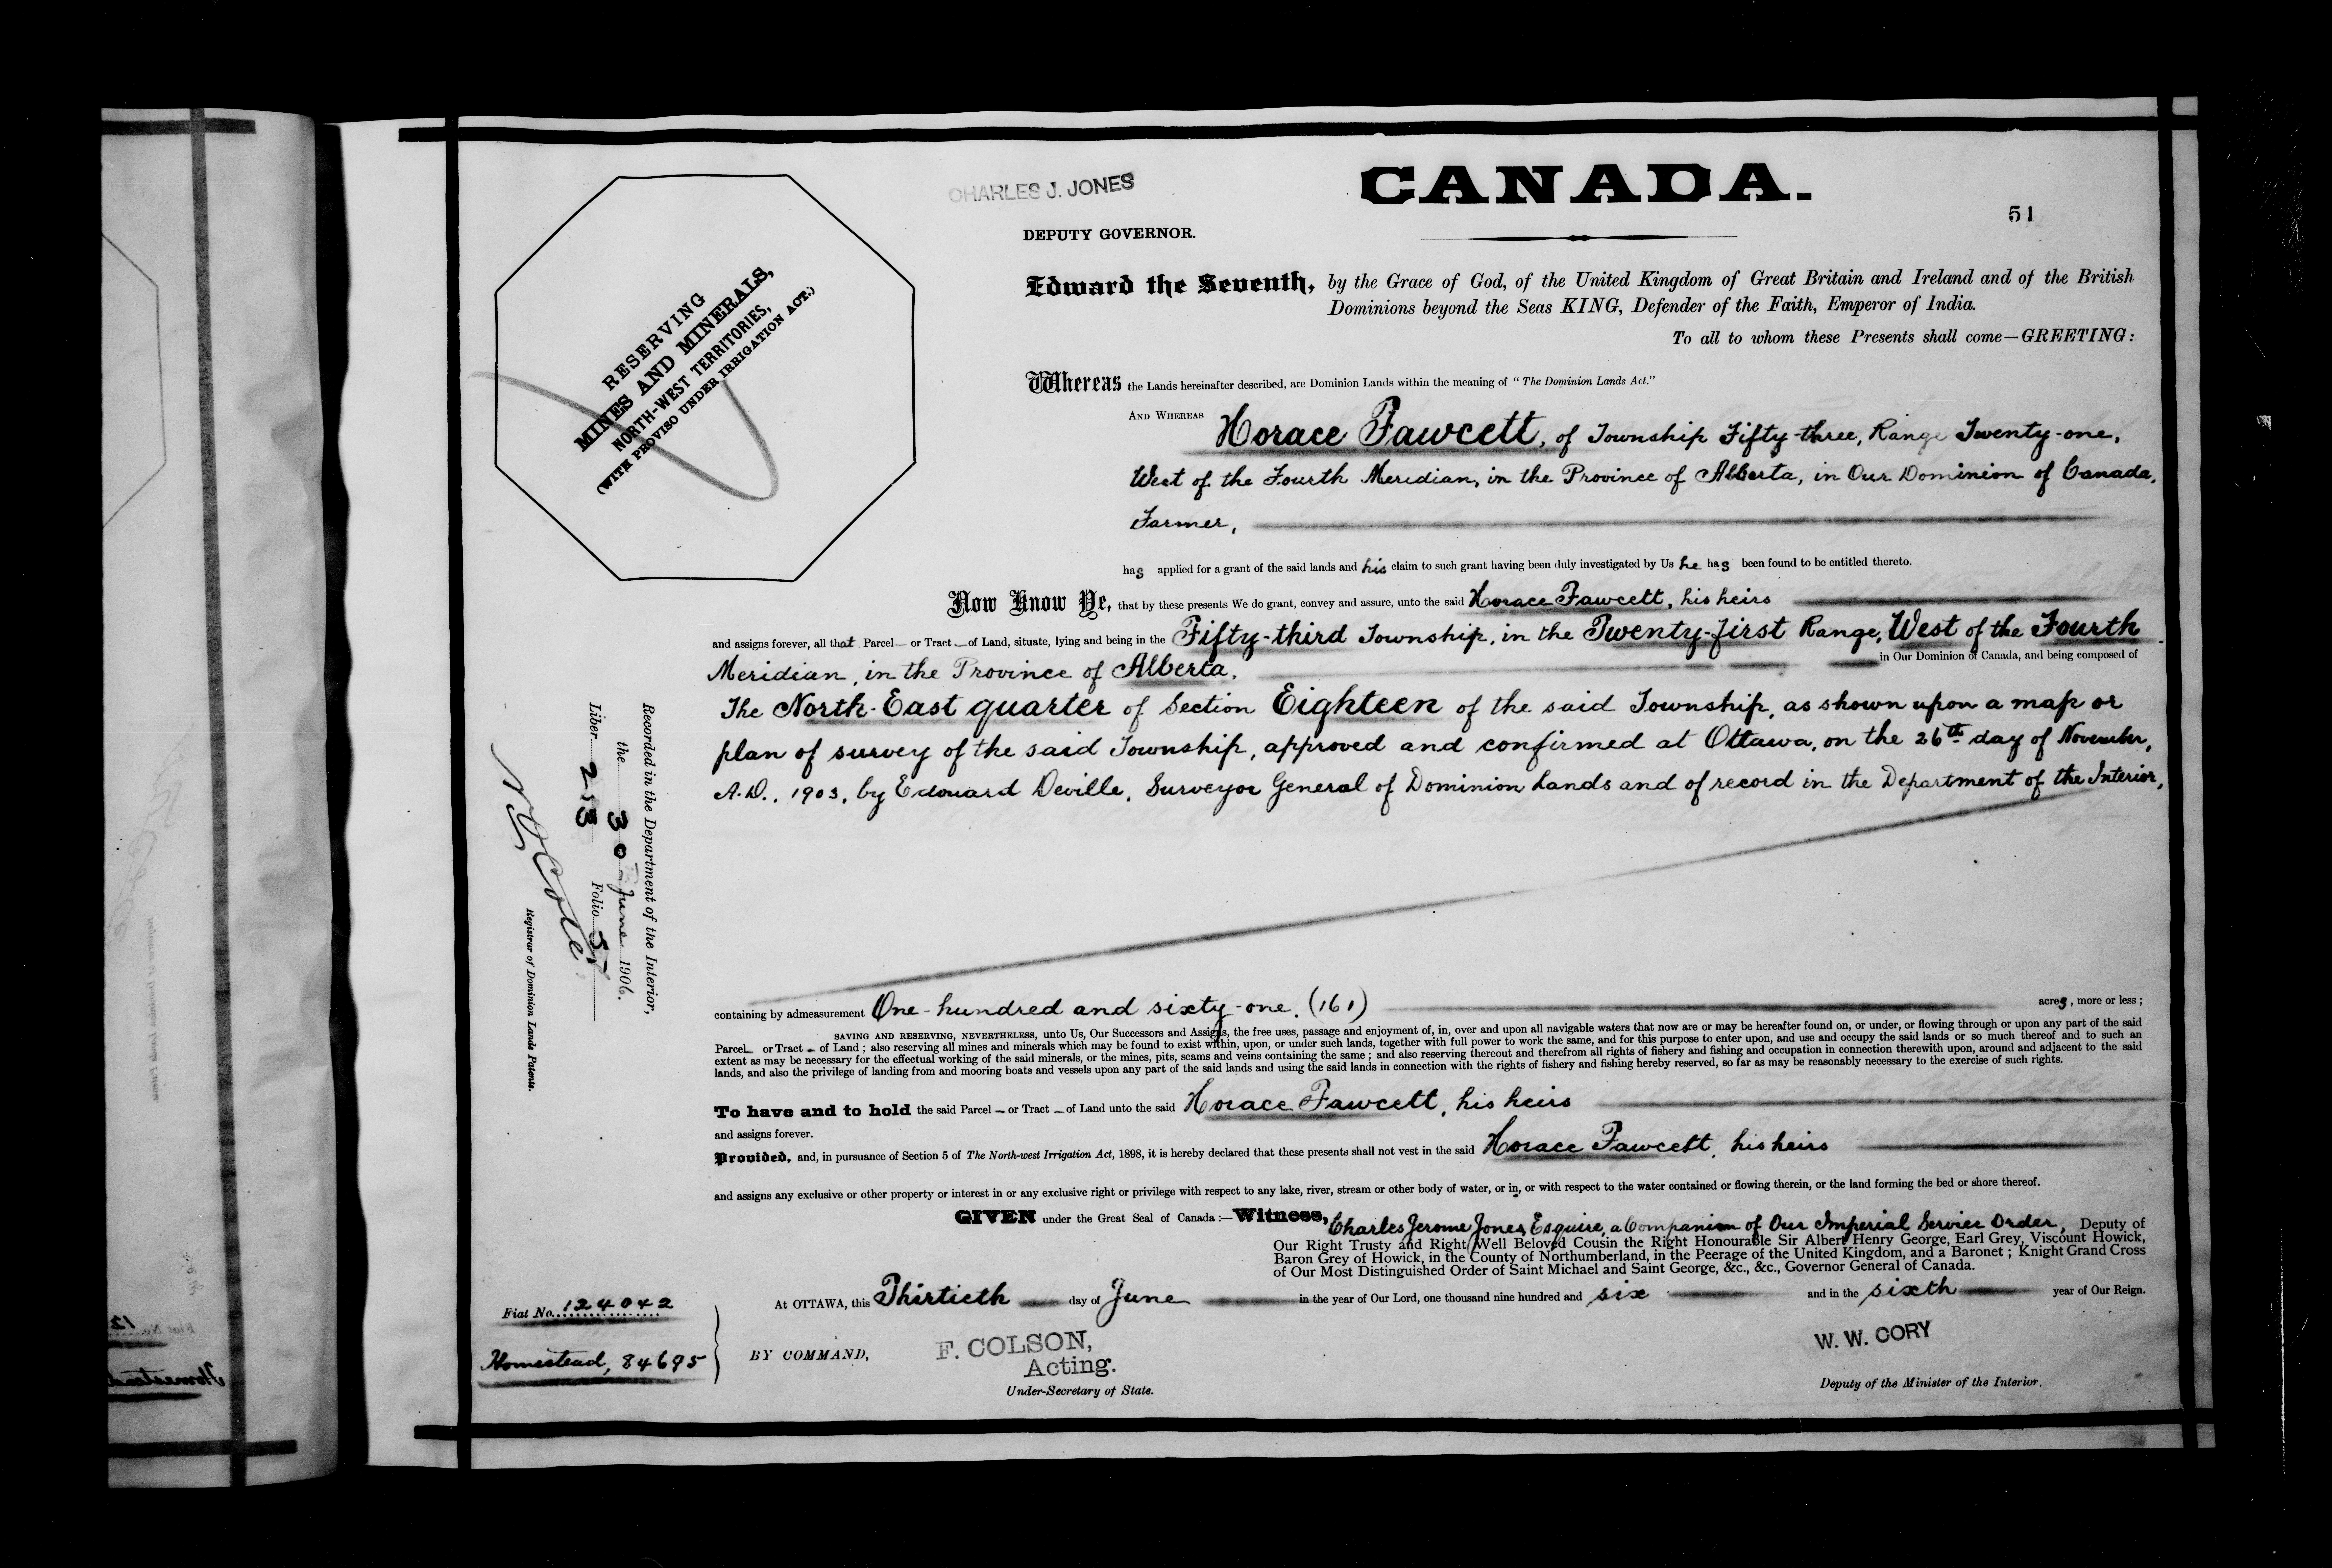 CHARLES J. JONES
DEPUTY GOVERNOR.
CANADA.
51
RESERVING
MINES AND MINERALS,
NORTH-WEST TERRITORIES,
(WITH PROVISO UNDER IRRIGATION ACT.)
Edward the Seventh, by the Grace of God, of the United Kingdom of Great Britain and Ireland and of the British
Dominions beyond the Seas KING, Defender of the Faith, Emperor of India.
To all to whom these Presents shall come—GREETING:
Whereas the Lands hereinafter described, are Dominion Lands within the meaning of "The Dominion Lands Act."
AND WHEREAS Horace Fawcett, of Township Fifty-three, Range Twenty-one,
West of the Fourth Meridian, in the Province of Alberta, in Our Dominion of Canada,
Farmer,
has applied for a grant of the said lands and his claim to such grant having been duly investigated by Us he has been found to be entitled thereto.
Now Know Ye, that by these presents We do grant, convey and assure, unto the said Horace Fawcett, his heirs
and assigns forever, all that Parcel or Tract of Land, situate, lying and being in the Fifty-third Township, in the Twenty-first Range, West of the Fourth
Meridian, in the Province of Alberta, in Our Dominion of Canada, and being composed of
The North-East quarter of Section Eighteen of the said Township, as shown upon a map or
plan of survey of the said Township, approved and confirmed at Ottawa, on the 26th day of November,
A.D., 1903, by Edouard Deville, Surveyor General of Dominion Lands and of record in the Department of the Interior,
containing by admeasurement One-hundred and sixty-one. (161) acres, more or less;
SAVING AND RESERVING, NEVERTHELESS, unto Us, Our Successors and Assigns, the free uses, passage and enjoyment of, in, over and upon all navigable waters that now are or may be hereafter found on, or under, or flowing through or upon any part of the said
Parcel or Tract of Land; also reserving all mines and minerals which may be found to exist within, upon, or under such lands, together with full power to work the same, and for this purpose to enter upon, and use and occupy the said lands or so much thereof and to such an
extent as may be necessary for the effectual working of the said minerals, or the mines, pits, seams and veins containing the same; and also reserving thereout and therefrom all rights of fishery and fishing and occupation in connection therewith upon, around and adjacent to the said
lands, and also the privilege of landing from and mooring boats and vessels upon any part of the said lands and using the said lands in connection with the rights of fishery and fishing hereby reserved, so far as may be reasonably necessary to the exercise of such rights.
To have and to hold the said Parcel or Tract of Land unto the said Horace Fawcett, his heirs
and assigns forever.
Provided, and, in pursuance of Section 5 of The North-west Irrigation Act, 1898, it is hereby declared that these presents shall not vest in the said Horace Fawcett, his heirs
and assigns any exclusive or other property or interest in or any exclusive right or privilege with respect to any lake, river, stream or other body of water, or in, or with respect to the water contained or flowing therein, or the land forming the bed or shore thereof.
GIVEN under the Great Seal of Canada:—Witness, Charles Jerome Jones Esquire, a Companion of Our Imperial Service Order, Deputy of
Our Right Trusty and Right Well Beloved Cousin the Right Honourable Sir Albert Henry George, Earl Grey, Viscount Howick,
Baron Grey of Howick, in the County of Northumberland, in the Peerage of the United Kingdom, and a Baronet; Knight Grand Cross
of Our Most Distinguished Order of Saint Michael and Saint George, &c., &c., Governor General of Canada.
At OTTAWA, this Thirtieth day of June in the year of Our Lord, one thousand nine hundred and six and in the sixth year of Our Reign.
BY COMMAND,
F. COLSON,
Acting.
Under-Secretary of State.
W. W. CORY
Deputy of the Minister of the Interior.
Recorded in the Department of the Interior,
the 30 June 1906.
Liber 213 Folio 51
Registrar of Dominion Lands Patents.
Fiat No. 124042
Homestead, 84695